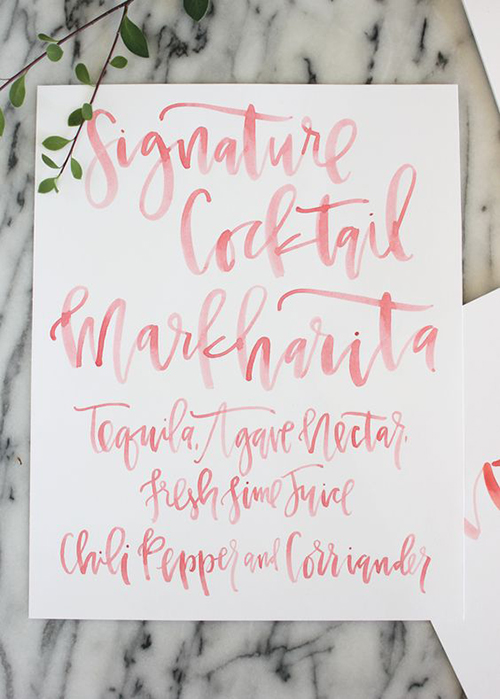 Signature
Cocktail
Markharita
Tequila, Agave Nectar,
Fresh Lime Juice
Chili Pepper and Corriander